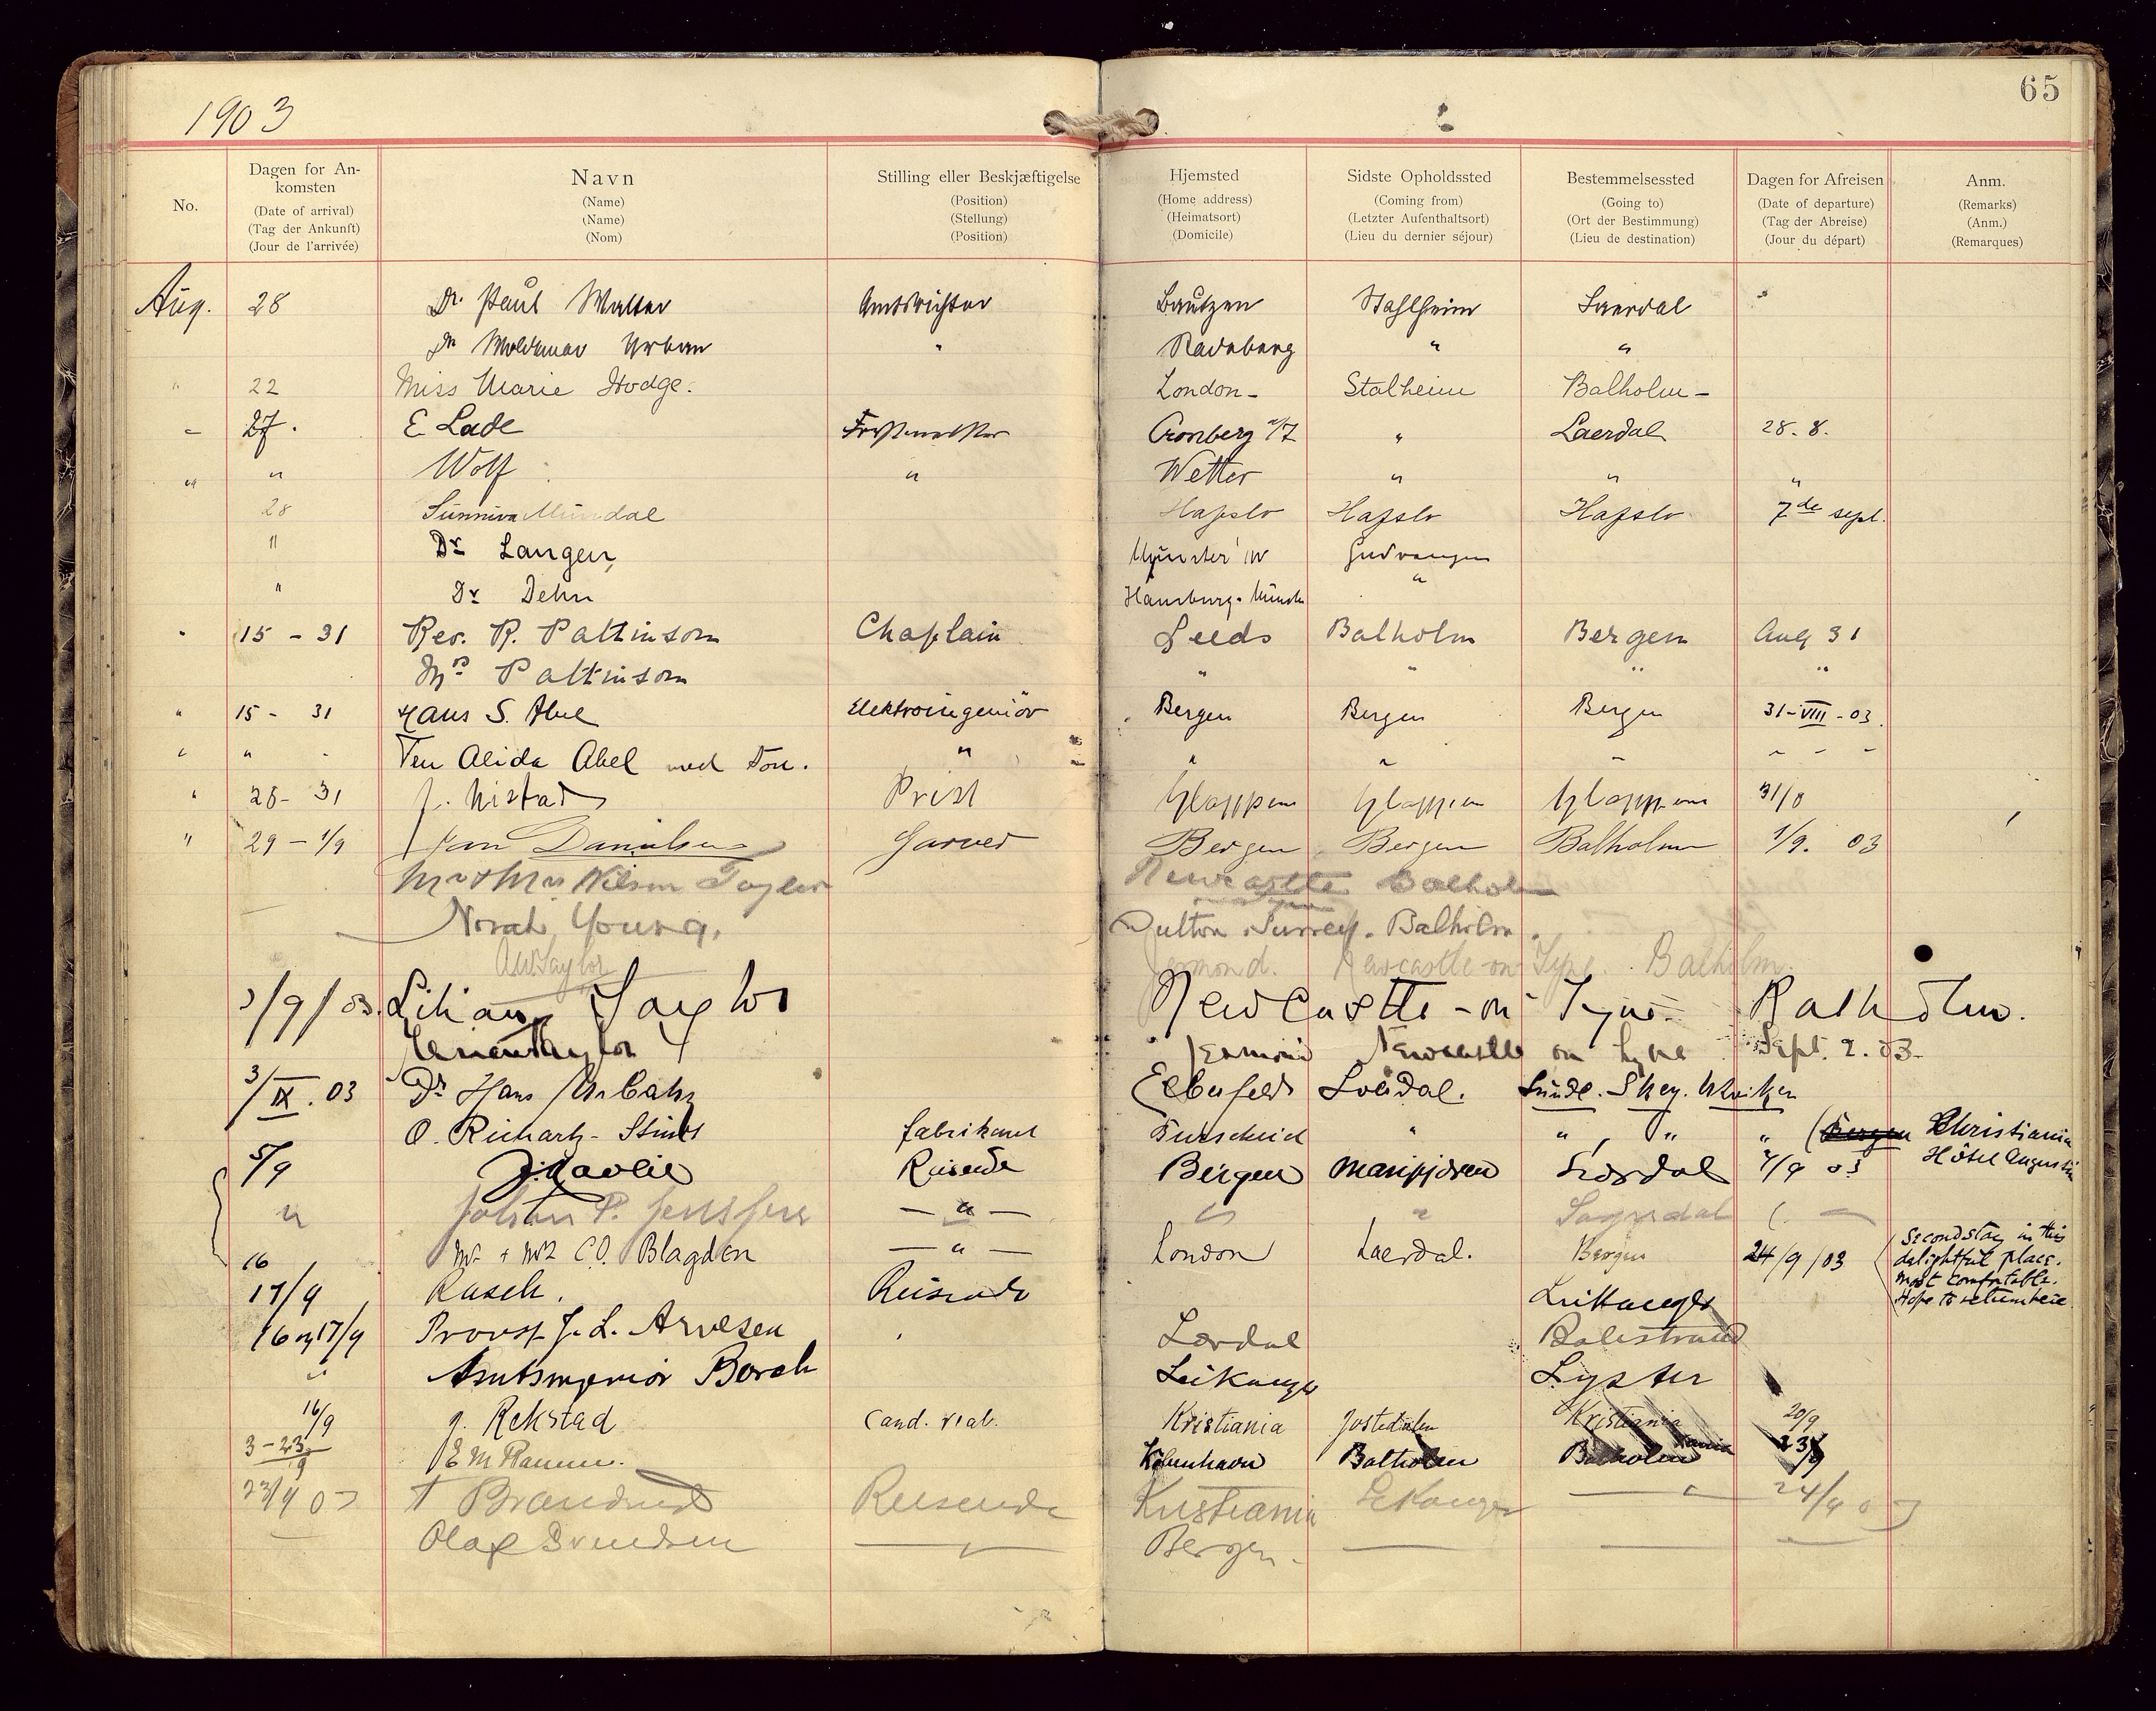 1903
65
No.
Dagen for An-
komsten
(Date of arrival)
(Tag der Ankunft)
(Jour de l'arrivée)
Navn
(Name)
(Name)
(Nom)
Stilling eller Beskjæftigelse
(Position)
(Stellung)
(Position)
Hjemsted
(Home address)
(Heimatsort)
(Domicile)
Sidste Opholdssted
(Coming from)
(Letzter Aufenthaltsort)
(Lieu du dernier séjour)
Bestemmelsessted
(Going to)
(Ort der Bestimmung)
(Lieu de destination)
Dagen for Afreisen
(Date of departure)
(Tag der Abreise)
(Jour du départ)
Anm.
(Remarks)
(Anm.)
(Remarques)
Aug. 28 Dr. Paul Walter Amtsrichter Bautzen Stahlheim Laerdal
Dr Woldemar Urban " Radeberg " "
" 22 Miss Marie Hodge. London - Stalheim Balholm -
- 27. E Lade Cronberg Laerdal 28. 8.
" " Wolf " Wetter " " "
28 Sunniva Mundal Hafslo Hafslo Hafslo 7de sept.
" Dr Langen, Münster i W Gudvangen
" Dr Dehn Hamburg. "
" 15 - 31 Rev. R. Pattinson Chaplain Leeds Balholm Bergen Aug 31
Mrs Pattinson " " " "
" 15 - 31 Hans S. Abel Elektroingeniör Bergen Bergen Bergen 31-VIII-03.
" " - Alida Abel med " " " " - - -
" 28- 31 J. Nistad Prest Gloppen Gloppen Gloppen 31/8
" 29 - 1/9 Danielsen Garver Bergen Bergen Balholm 1/9. 03
Mr & Mrs Wilson Taylor Newcastle Balholm
Norah Young. Sutton Surrey. Balholm.
A W Taylor Jesmond. Newcastle-on-Tyne. Balholm.
3/9/03. Lilian Taylor Newcastle-on-Tyne. Balholm.
Taylor Jesmond Newcastle on Tyne Sept. 2. 03-
3/IX. 03 Dr Hans Elberfeld Loerdal.
O. Richartz - fabrikant " " , " " (Bergen Christiania
Hôtel Augustin
5/9 Reisende Bergen Marifjoren Lærdal 7/9 03
" Johan P. — " — " " Sogndal
16 Mr + Mrs C.O. Blagden — " — London Laerdal. Bergen 24/9/03
Second stay in this
delightful place.
Most comfortable.
Hope to return here
17/9 Rasch. Reisende Leikanger
16 og 17/9 Provst J. L. Arvesen Lærdal Balestrand
" Amtsingeniør Borch Leikanger Lyster
16/9 J. Rekstad Cand. real. Kristiania Jostedalen Kristiania 20/9
3 - 23/9 E M Kobenhavn Balholm Balholm 23/9
23/9 03 Reisende Kristiania Lekanger — " — 24/9 03
Olaf Svendsen Bergen.